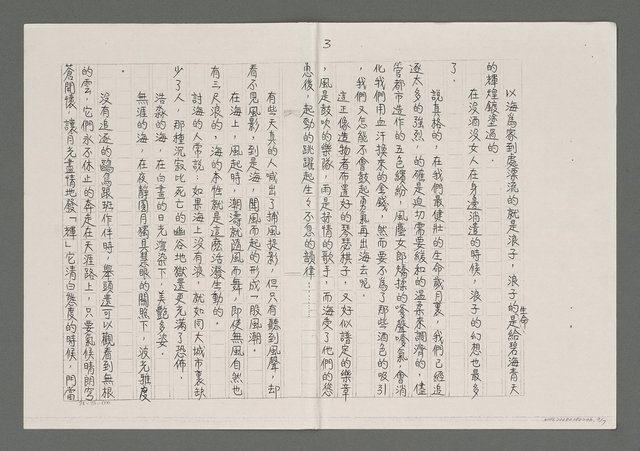 3
以海為家到處漂流的就是浪子，浪子的生命是給碧海青天
的輝煌鍍塗過的．
在沒酒沒女人在身邊消遣的時候，浪子的幻想也最多
了．
說真格的，在我們最健壯的生命歲月裏，我們已經追
逐太多的強烈，的確是迫切需要緩和的溫柔來潤濟的，儘
管都市造作的五色繽紛，風塵女郎矯揉的聲嗲氣，會消
化我們用血汗換來的金錢，然而要不為了那些酒色的吸引
，我們又怎能不會鼓起勇氣再出海去呢．
這正像造物者布置好的琴瑟棋子，又好似譜足的樂章
，風是鼓吹的樂隊，雨是抒情的歌手，而海受了他們的慫
恿後，起勁的跳躍起生生不息的韻律……
有些天真的人喊出了捕風捉影，但只有聽到風聲，却
看不見風影，到是海，聞風而起的形成一股風潮．
在海上，風起時，潮濤就隨風而舞，即使無風自然也
有三尺浪的，海的本性就是這麽活潑生動的．
討海的人常說：如果海上沒有浪，就如同大城市裏缺
少了人，那種沉寂比死亡的幽谷地獄還更充滿了恐怖．
浩淼的海，在白晝的日光渲染下，美艷多姿．
無涯的海，在夜靜圓月獨具慧眼的關照下，波光雅度
．
沒有追逐的鷗鳥跟班作伴時，舉頭還可以觀看到無根
的雲，它們永不休止的奔走在天涯路上，只要氣候晴朗穹
蒼開懷，讓月光盡情地發「輝」它清白態度的時候，門當